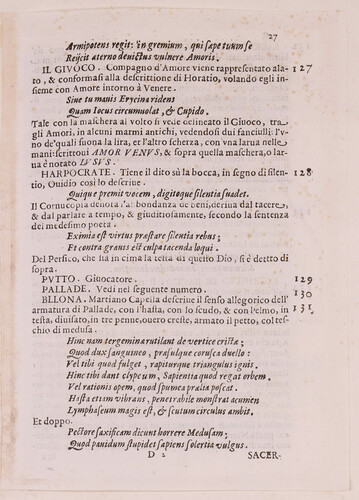 27
Armipotens regit: in gremium, qui sæpe tuum se
Reijcit æterno deuictus vulnere Amoris.
IL GIVOCO. Compagno d'Amore viene rappresentato ala- 127
to, & conformasi alla descrittione di Horatio, volando egli in-
sieme con Amore intorno à Venere.
Siue tu mauis Erycina ridens
Quam Iocus circumuolat, & Cupido.
Tale con la maschera al volto si vede delineato il Giuoco, tra
gli Amori, in alcuni marmi antichi, vedendosi dui fanciulli: l'v-
no de'quali suona la lira, et l'altro scherza, con vna larua nelle
mani: scrittoui AMOR VENVS, & sopra quella maschera, o lar-
ua è notato LVSVS.
HARPOCRATE. Tiene il dito sù la bocca, in segno di silen- 128
tio, Ouidio così lo descriue.
Quique premit vocem, digitoque silentia suadet.
Il Cornucopia denota l'abbondanza de beni, deriua dal tacere,
& dal parlare a tempo, & giuditiosamente, secondo la sentenza
del medesimo poeta.
Eximia est virtus præstare silentia rebus;
Et contra grauis est culpa tacenda loqui.
Del Persico, che hà in cima la testa di questo Dio, si è detto di
sopra.
PVTTO. Giuocatore. 129
PALLADE. Vedi nel seguente numero. 130
BLLONA. Martiano Capella descriue il senso allegorico dell' 131
armatura di Pallade, con l'hasta, con lo scudo, & con l'elmo, in
testa, diuisato, in tre penne, ouero creste, armato il petto, col tes-
chio di medusa.
Hinc nam tergemina rutilant de vertice cristæ;
Quod dux sanguineo, præsulque corusca duello:
Vel tibi quod fulget, rapiturque triangulus ignis.
Hinc tibi dant clypeum, Sapientia quod regat orbem.
Vel rationis opem, quod spumea prælia poscat.
Hasta etiam vibrans, penetrabile monstrat acumen
Lymphaseum magis est, & scutum circulus ambit.
Et doppo.
Pectore saxificam dicunt horrere Medusam;
Quod pauidum stupidet sapiens solertia vulgus.
D 2 SACER-